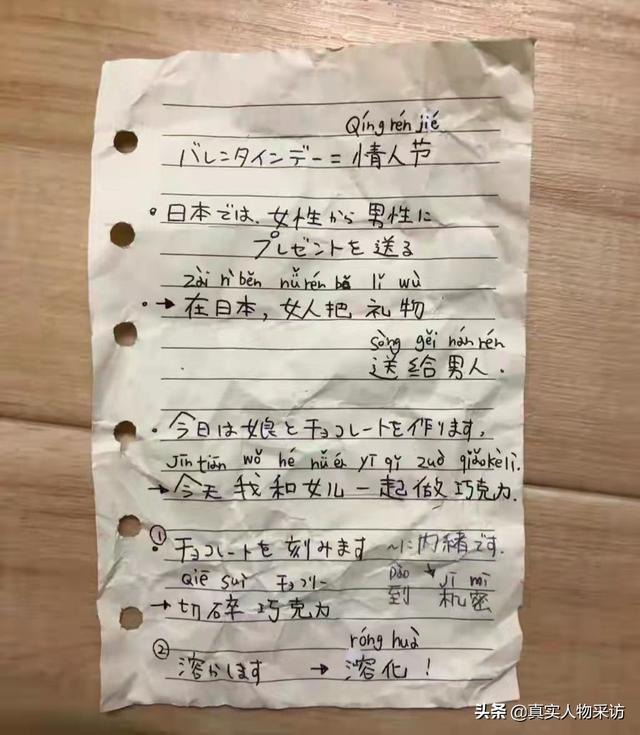 Qíng rén jié
バレンタインデー＝情人节
・日本では、女性から男性に
プレゼントを送る
zài rì běn nǚ rén bǎ lǐ wù
・→在日本，女人把礼物
sòng gěi nán rén
送给男人.
・今日は娘とチョコレートを作ります。
Jīn tiān wǒ hé nǚ ér yī qǐ zuò qiǎo kè lì.
→今天我和女儿一起做巧克力.
①
・チョコレートを刻みます ～に内緒です.
qiē suì チョコリー dào jī mì
→切碎巧克力 到 机密
róng huà
②溶かします → 溶化！
头条 @真实人物采访